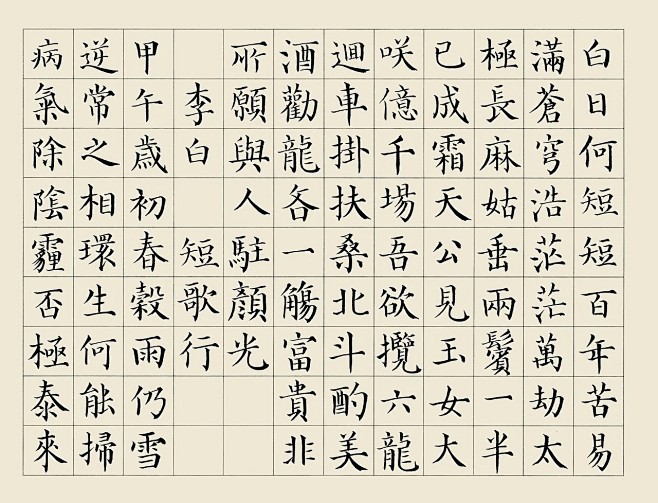 白日何短短百年苦易
滿蒼穹浩茫茫萬劫太
極長麻姑垂兩鬢一半
已成霜天公見玉女大
咲億千場吾欲攬六龍
迴車掛扶桑北斗酌美
酒勸龍各一觴富貴非
所願與人駐顏光
李白 短歌行
甲午歲初春穀雨仍雪
逆常之相環生何能掃
病氣除陰霾否極泰來